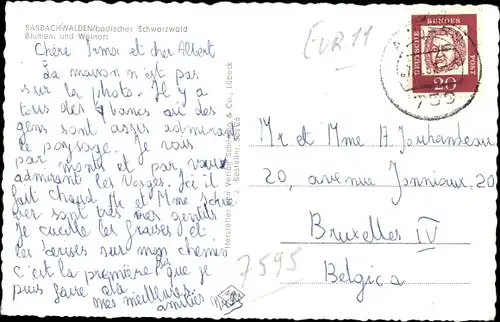 SASBACHWALDEN/badischer Schwarzwald
Blumen- und Weinort
Chère Irma et cher Albert
La maison n'est pas
sur la photo. Il y a
tous des bancs où des
gens sont assis admirant
le paysage. Je vous
par monts et par vaux
admirant les Vosges. Ici il
fait chaud. Mr et Mme
sont très très gentils
Je cueille les fraises et
les cerises sur mon chemin
c'est la première fois que je
puis faire cela
mes meilleures
amitiés
EUR 11
DEUTSCHE BUNDESPOST
20
Mr et Mme A. Jouhandeau
20, avenue Jonniaux, 20
Bruxelles IV
Belgica
7595